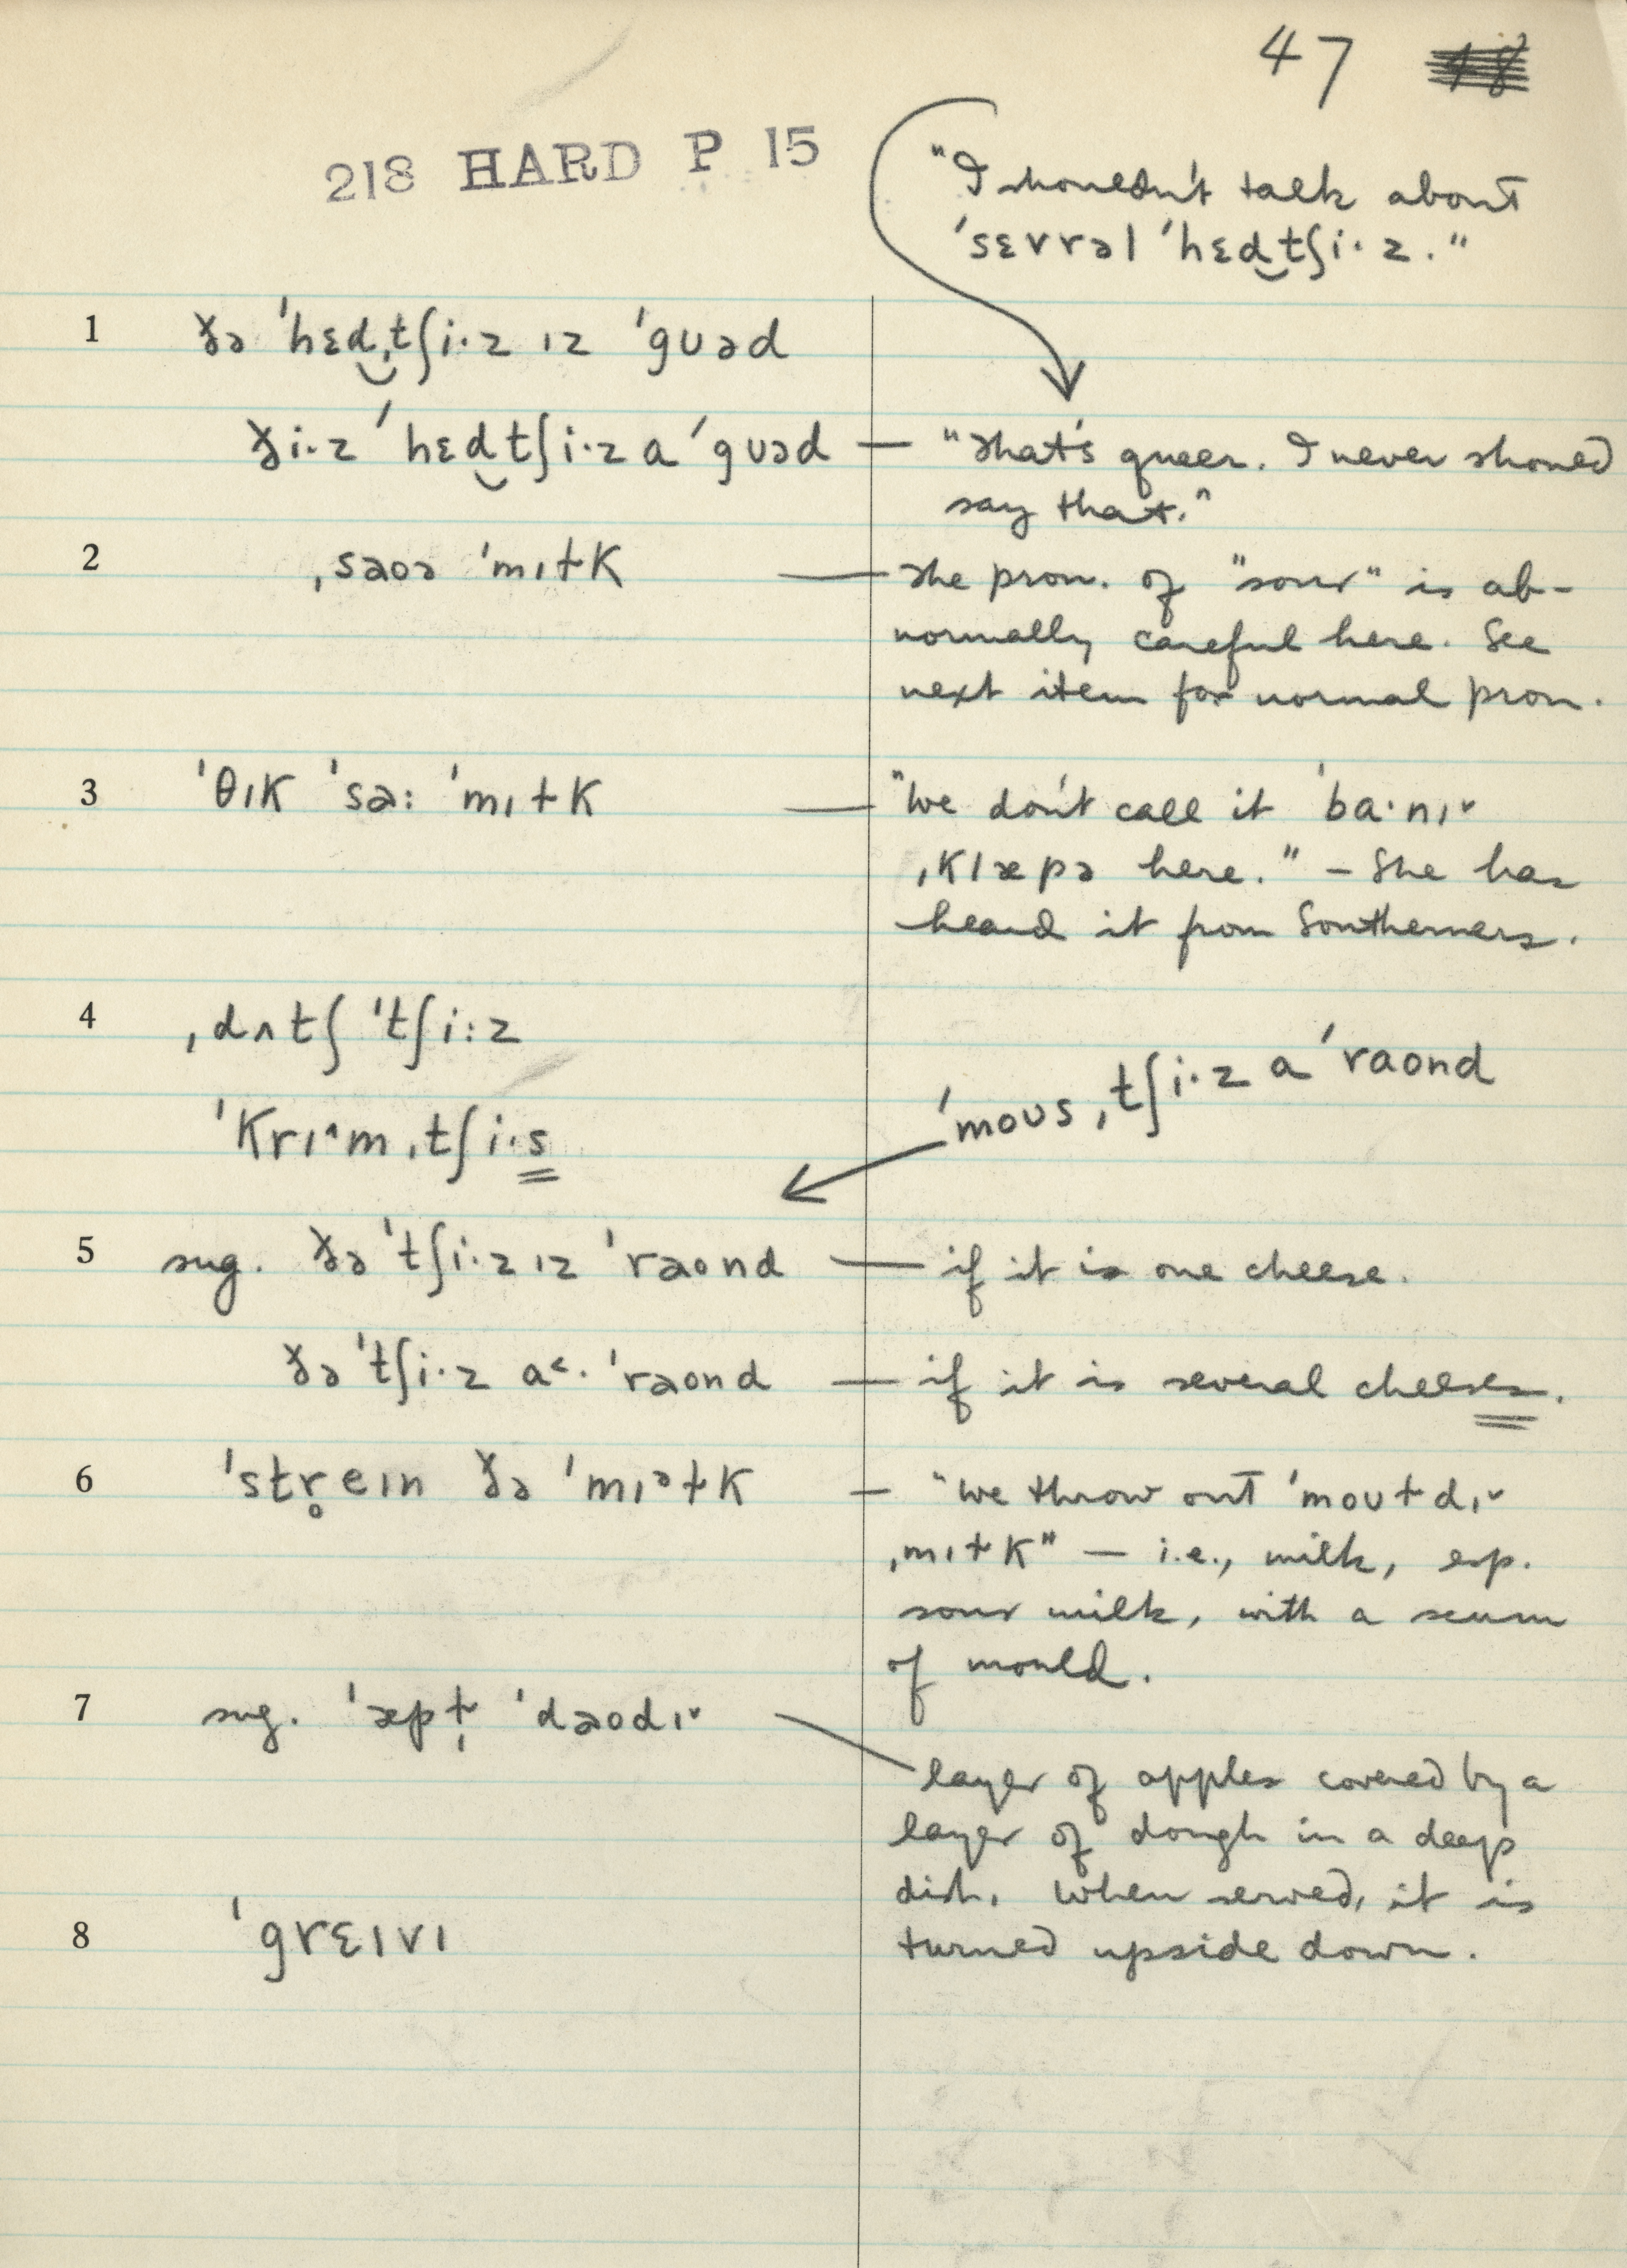 47
218 HARD P 15
"I shouldn't talk about
ˈsɛvrəl ˈhɛd̮tʃiˑz."
1 ðə ˈhɛd̮ˌtʃiˑz ɪz ˈgʊəd
ðiˑz ˈhɛd̮tʃiˑz a ˈgʊəd — "That's queer. I never should
say that."
2 ˌsaoə ˈmɪɫk — The pron. of "sour" is ab-
normally careful here. See
next item for normal pron.
3 ˈθɪk ˈsaː ˈmɪɫk — "We don't call it ˈbaˑnɪ˅
ˌklæpə here." – She has
heard it from Southerners.
4 ˌdʌtʃ ˈtʃiːz
ˈmoʊsˌtʃiˑz a ˈraond
ˈkrɪ^m ˌtʃiˑs
5 sug. ðə ˈtʃiˑz ɪz ˈraond — if it is one cheese.
ðə ˈtʃiˑz a˂ˑ ˈraond — if it is several cheeses.
6 ˈstr̥eɪn ðə ˈmɪᵊɫk — "We throw out ˈmoʊɫdɪ˅
ˌmɪɫk" — i.e., milk, esp.
sour milk, with a scum
of mould.
7 sug. ˈæpɫ̩ ˈdaodɪ˅
layer of apples covered by a
layer of dough in a deep
dish. When served, it is
8 ˈgrɛɪvɪ turned upside down.